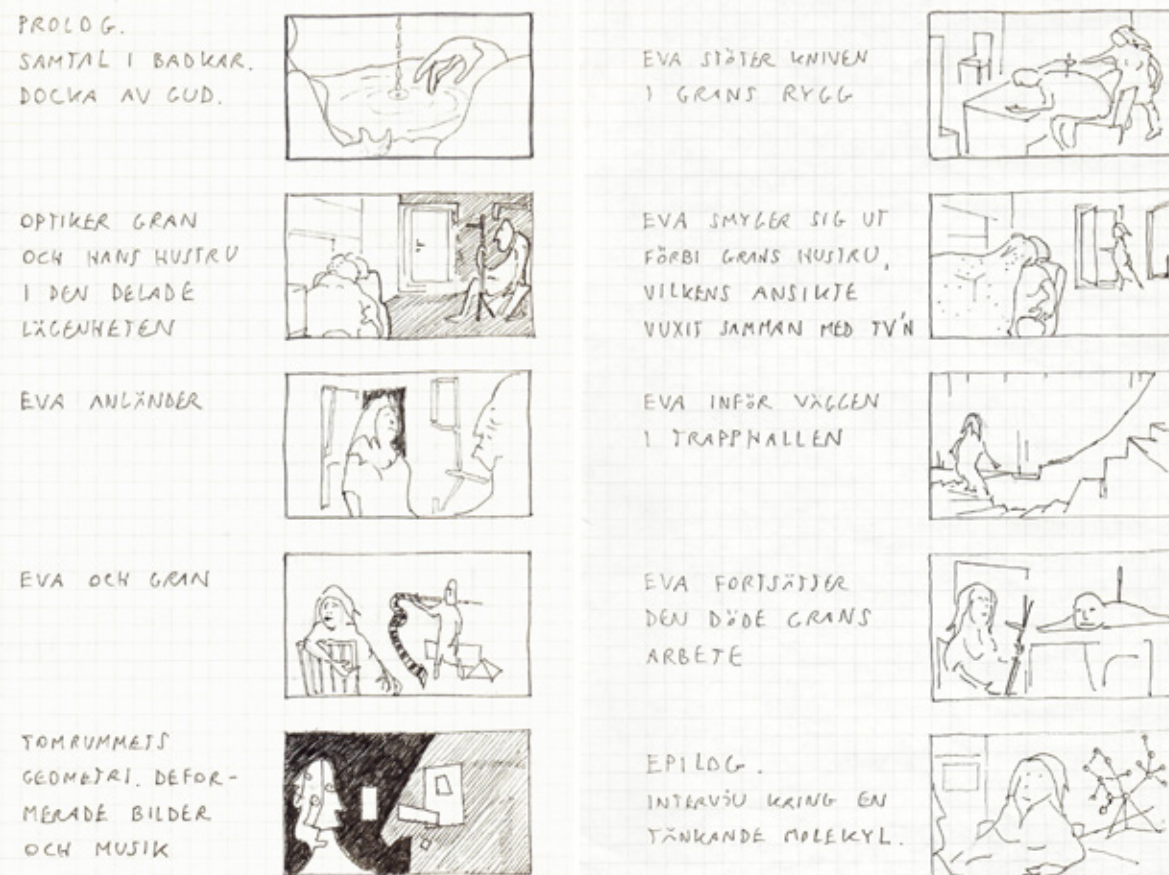 PROLOG.
SAMTAL I BADKAR.
DOCKA AV GUD.
OPTIKER GRAN
OCH HANS HUSTRU
I DEN DELADE
LÄGENHETEN
EVA ANLÄNDER
EVA OCH GRAN
TOMRUMMETS
GEOMETRI. DEFOR-
MERADE BILDER
OCH MUSIK
EVA STÖTER KNIVEN
I GRANS RYGG
EVA SMYGER SIG UT
FÖRBI GRANS HUSTRU,
VILKENS ANSIKTE
VUXIT SAMMAN MED TV'N
EVA INFÖR VÄGGEN
I TRAPPHALLEN
EVA FORTSÄTTER
DEN DÖDE GRANS
ARBETE
EPILOG.
INTERVJU KRING EN
TÄNKANDE MOLEKYL.